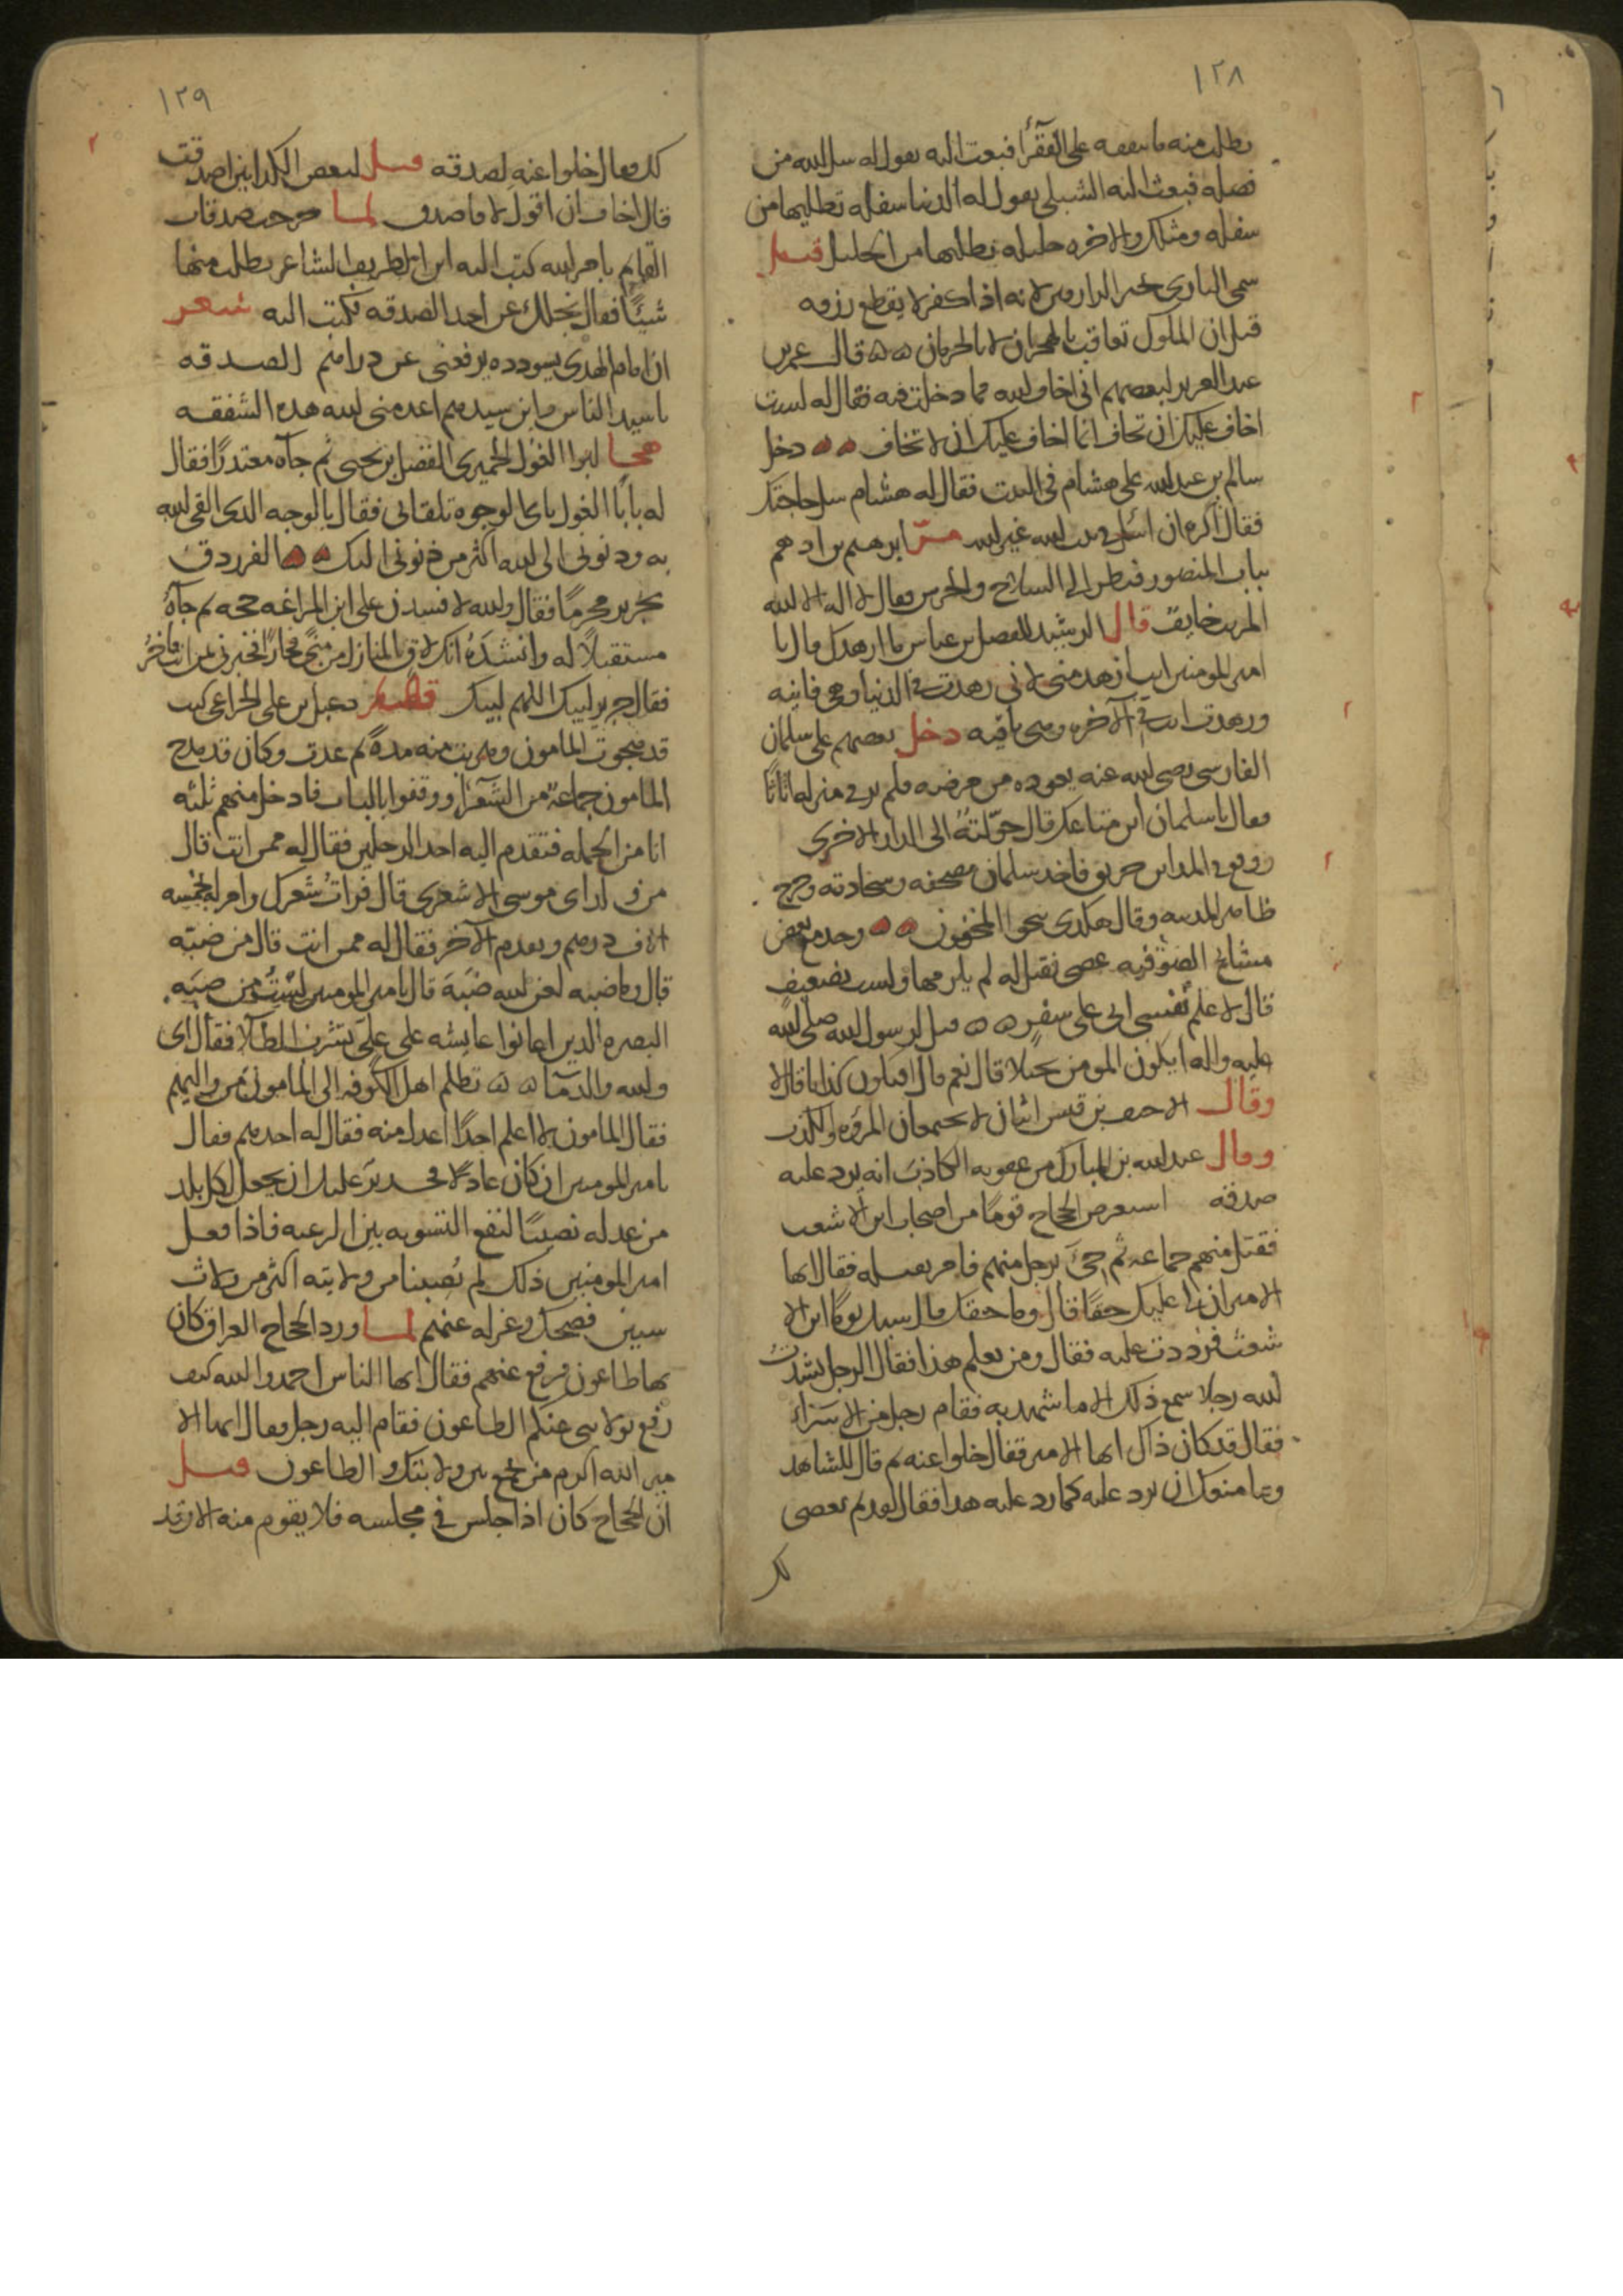 ١٢٨
يطلب منه ما ينفقه على الفقرأ فبعث اليه يقول له سل الله من
فضله فبعث اليه الشبلى يقول له الدنيا سفله تطلبها من
سفله ومثلك والاخره جليله نطلبها من الجليل قيل
سمى البارى خير الرازقين لانه اذا كفر لا يقطع رزقه
قيل ان الملوك تعاقب بالهجران لا بالحرمان قال عمر بن
عبد العزيز لبعضهم انى اخاف الله مما دخلت فيه فقال له لست
اخاف عليك ان تخاف انما اخاف عليك ان لا تخاف دخل
سالم بن عبد الله على هشام فى البيت فقال له هشام سل حاجتك
فقال اكره ان اسئل فى بيت الله غير الله مرّ ابرهيم بن ادهم
بباب المنصور فنظر الى السلاح والحرس فقال لا اله الا الله
المريب خايف قال الرشيد للفضل بن عياض ما ازهدك قال يا
امير المومنين انت ازهد منى لانى زهدت فى الدنيا وهى فانيه
وزهدت انت فى الآخره وهى باقيه دخل بعضهم على سلمان
الفارسى رضى الله عنه يعوده من مرضه فلم ير فى منزله اثاثًا
فقال يا سلمان اين متاعك قال حوّلته الى الدار الاخرى
ووقع فى المداين حريق فاخذ سلمان مصحفه وسجادته وخرج
ظاهر المدينه وقال هكذى ينجوا المخفون وجد مع بعض
مشايخ الصوفيه عصى فقيل له لم يلزمها ولست بضعيف
قال لاعلم نفسى انى على سفرٍ قيل لرسول الله صلى الله
عليه واله ايكون المومن بخيلا قال نعم قال افيكون كذابا قال لا
وقال الاحنف بن قيس اثنان لا يجتمعان المروه والكذب
وقال عبد الله بن المبارك من عقوبه الكاذب انه يرد عليه
صدقه استعرض الحجاج قومًا من اصحاب ابن الاشعب
فقتل منهم جماعه ثم جئ برجل منهم فامر بقتله فقال ايها
الامير ان لى عليك حقًا قال وما حقك قال سبك يومًا ابن الا
شعث فرددت عليه فقال ومن يعلم هذا فقال الرجل نشدت
لله رجلا سمع ذلك الا ما شهد به فقام رجل من الاسراء
فقال قد كان ذاك ايها الامير فقال خلوا عنه ثم قال للشاهد
وما منعك ان ترد عليه كما رد عليه هذا فقال لقديم بعضى
لك
١٢٩
لك فقال خلوا عنه لصدقه قيل لبعض الكذابين اصدقت
قال اخاف ان اقول لا فاصدق لما خرجت صدقات
القايم بامر الله كتب اليه ابن الطريف الشاعر يطلب منها
شيئًا فقال نجلك عن اخذ الصدقه فكتب اليه شعر
ان امام الهدى بسودده يرفعنى عن دراهم الصدقه
يا سيد الناس وابن سيدهم اعدمنى الله هذه الشفقه
هجا الغول الحميرى الفضل بن يحيى ثم جآه معتذرًا فقال
له يابا الغول باى الوجوه تلقانى فقال بالوجه الذى القى الله
به وذنوبى الى الله اكثر من ذنوبى اليك الفرزدق
بجرير محرمًا فقال والله لافسدن على ابن المراغه حجه ثم جآه
مستقبلاً له وانشده انك لاق بالمنازل من منىً فخارًا فخبرنى بمن انت فاخرُ
فقال جرير لبيك اللهم لبيك دعبل بن على الخزاعى كنت
قد هجوت المامون وهربت منه مدةً ثم عدت وكان قد مدح
المامون جماعة من الشعرأ ووقفوا بالباب فادخل منهم ثلثه
انا من الجمله فتقدم اليه احد الرجلين فقال له ممن انت قال
من ولد ابى موسى الاشعرى قال قرأت شعرك وامر له بخمسه
الاف درهم وتقدم الآخر فقال له ممن انت قال من ضبّه
قال ياضبه لعن الله ضبّه قال يا امير المومنين لست من ضبّه
البصره الذين اعانوا عايشه على علىّ
والله والدمآ تظلم اهل الكوفه الى المامون من واليهم
فقال المامون لا اعلم احدًا اعدل منه فقال له احدهم فقال
يا امير المومنين ان كان عادلا فى عليك ان يجعل لكل بلد
من عدله نصيبًا لتقع التسويه بين الرعيه فاذا فعل
امير المومنين ذلك لم يُصبنا من ولايته اكثر من ثلاث
سنين فضحك وعزله عنهم لما ورد الحجاج العراق كان
بها طاعون فرفع عنهم فقال ايها الناس احمدوا الله كيف
رفع بولايتى عنكم الطاعون فقام اليه رجل وقال ايها الا
مير الله اكرم من يجمع بين ولايتك والطاعون قيل
انّ الحجاج كان اذا جلس فى مجلسه فلا يقوم منه الا وقد